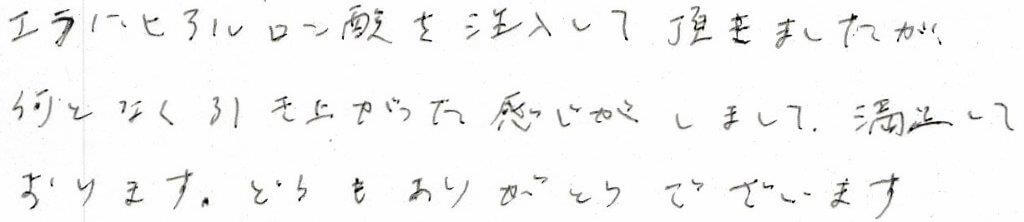 エラにヒアルロン酸を注入して頂きましたが、
何となく引き上がった感じがしまして、満足して
おります。どうもありがとうございます